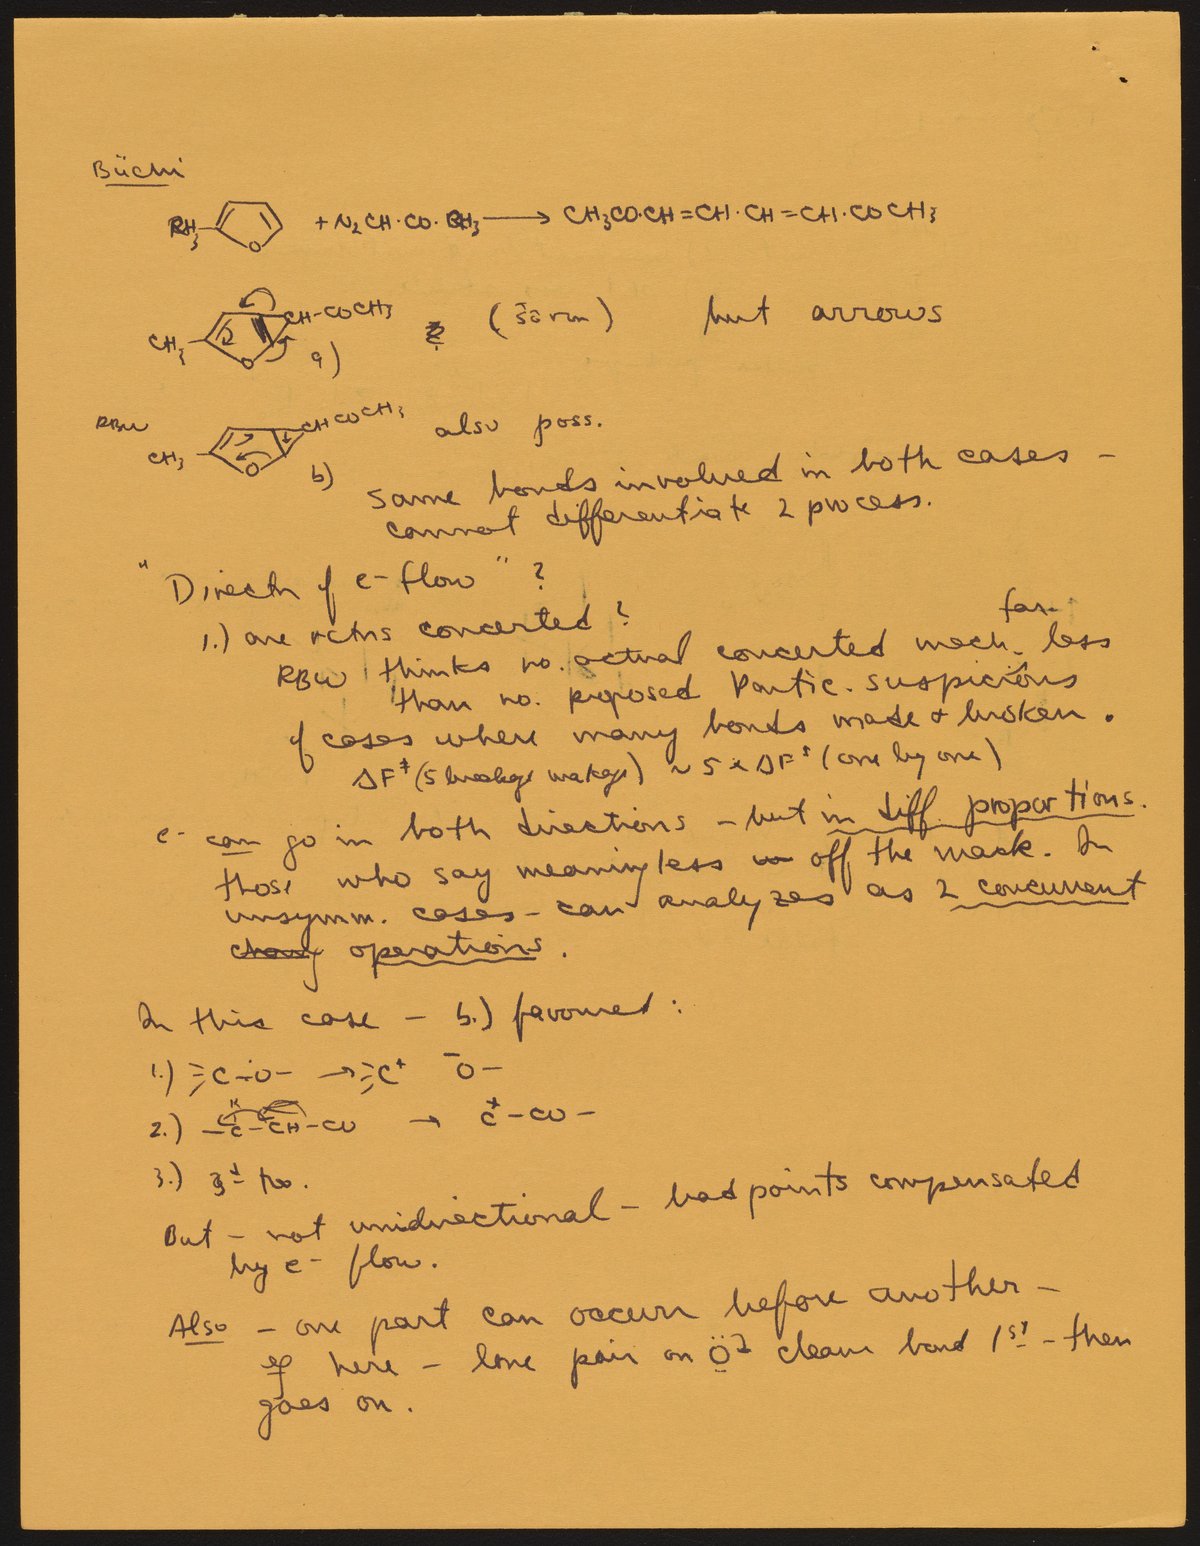 Büchi
CH3 O + N2CH·CO·CH3 → CH3CO·CH=CH·CH=CH·COCH3
CH3 O CH-COCH3 a) but arrows
RBW CH3 O CHCOCH3 b) also poss.
same bonds involved in both cases –
cannot differentiate 2 process.
"Directn of e- flow" ?
1.) are rctns concerted ?
RBW thinks no. actual concerted mech. far less
than no. proposed Partic. suspicious
of cases where many bonds made & broken.
ΔF‡ (5 breakge makge) ~ 5 x ΔF‡ (one by one)
e- can go in both directions – but in diff. proportions.
those who say meaningless off the mark. In
unsymm. cases – can analyze as 2 concurrent
operations.
In this case – b.) favoured :
1.) C-O- → C+ -O-
2.) -C-CH-CO → C+-CO-
3.) 3d too.
But – not unidirectional – bad points compensated
by e- flow.
Also – one part can occur before another –
eg here – lone pair on O cleave bond 1st – then
goes on.